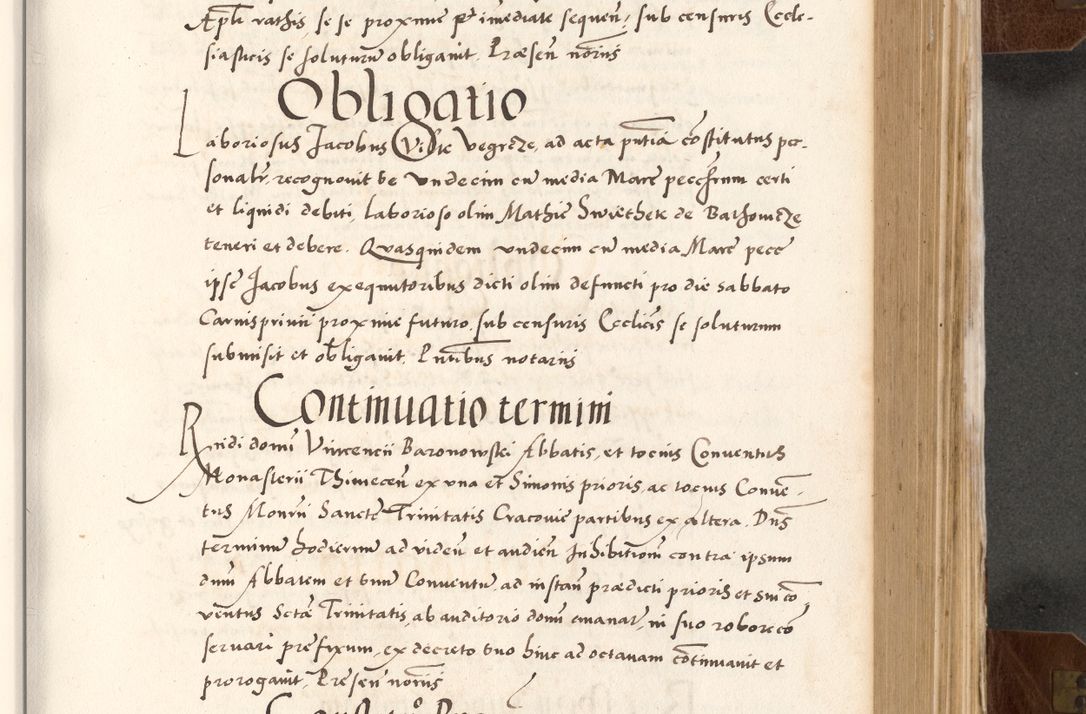 Apli rathis, se se proxime et imediate sequen: sub censuris Eccle-
siasticis se soluturum obligavit. Præsen noriis
Obligatio
Laboriosus Jacobus Vegrcze, ad acta pntia costitutus per-
sonalr, recognovit se undecim cu media Marc pecc certi
et liquidi debiti, Laborioso olim Mathie Swiethek de
teneri et debere. Quasquidem undecim cu media Marc pecc
ipse Jacobus exequutoribus dicti olim defuncti pro die sabbato
Carnisprivii proxime futuro, sub censuris Ecclicis se soluturum
submisit et obligavit, Pntibus notariis
Continuatio termini
Rndi domi Vincencii Baronowski Abbatis, et tocius Conventus
Monasterii Thinecen ex una et Simonis prioris, ac tocius Conve-
tus Monrii Sancte Trinitatis Cracovie partibus ex altera. Dns
terminum hodiernum ad viden et audien Inhibitiom contra ipsum
dnm Abbatem et suum Conventu, ad instan prædicti prioris et sui co
ventus Sctæ Trinitatis, ab auditorio domi emanar, in suo robore co
servari prefixum, ex decreto suo hinc ad octavam cotinuavit et
prorogavit, Presen noriis